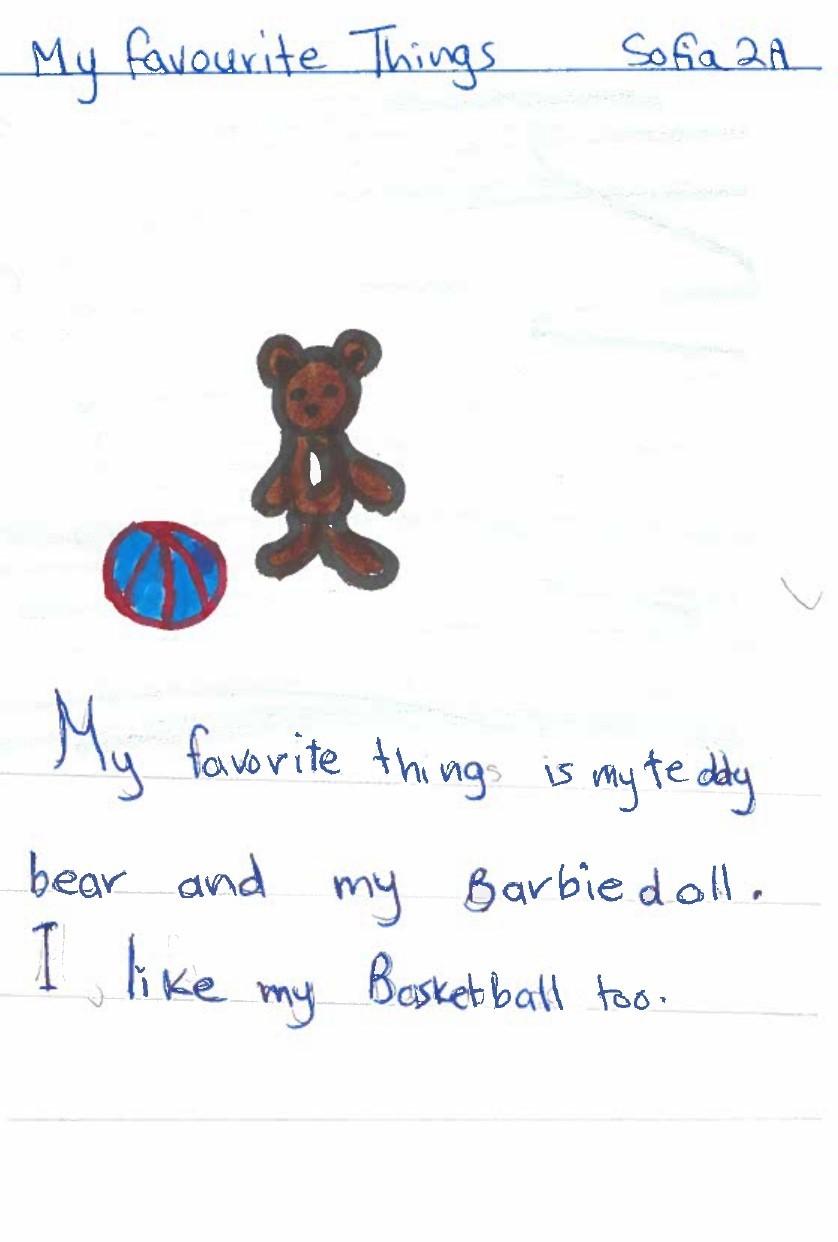 My favourite Things Sofia 2A
My favorite things is my teddy
bear and my Barbie doll.
I like my Basketball too.